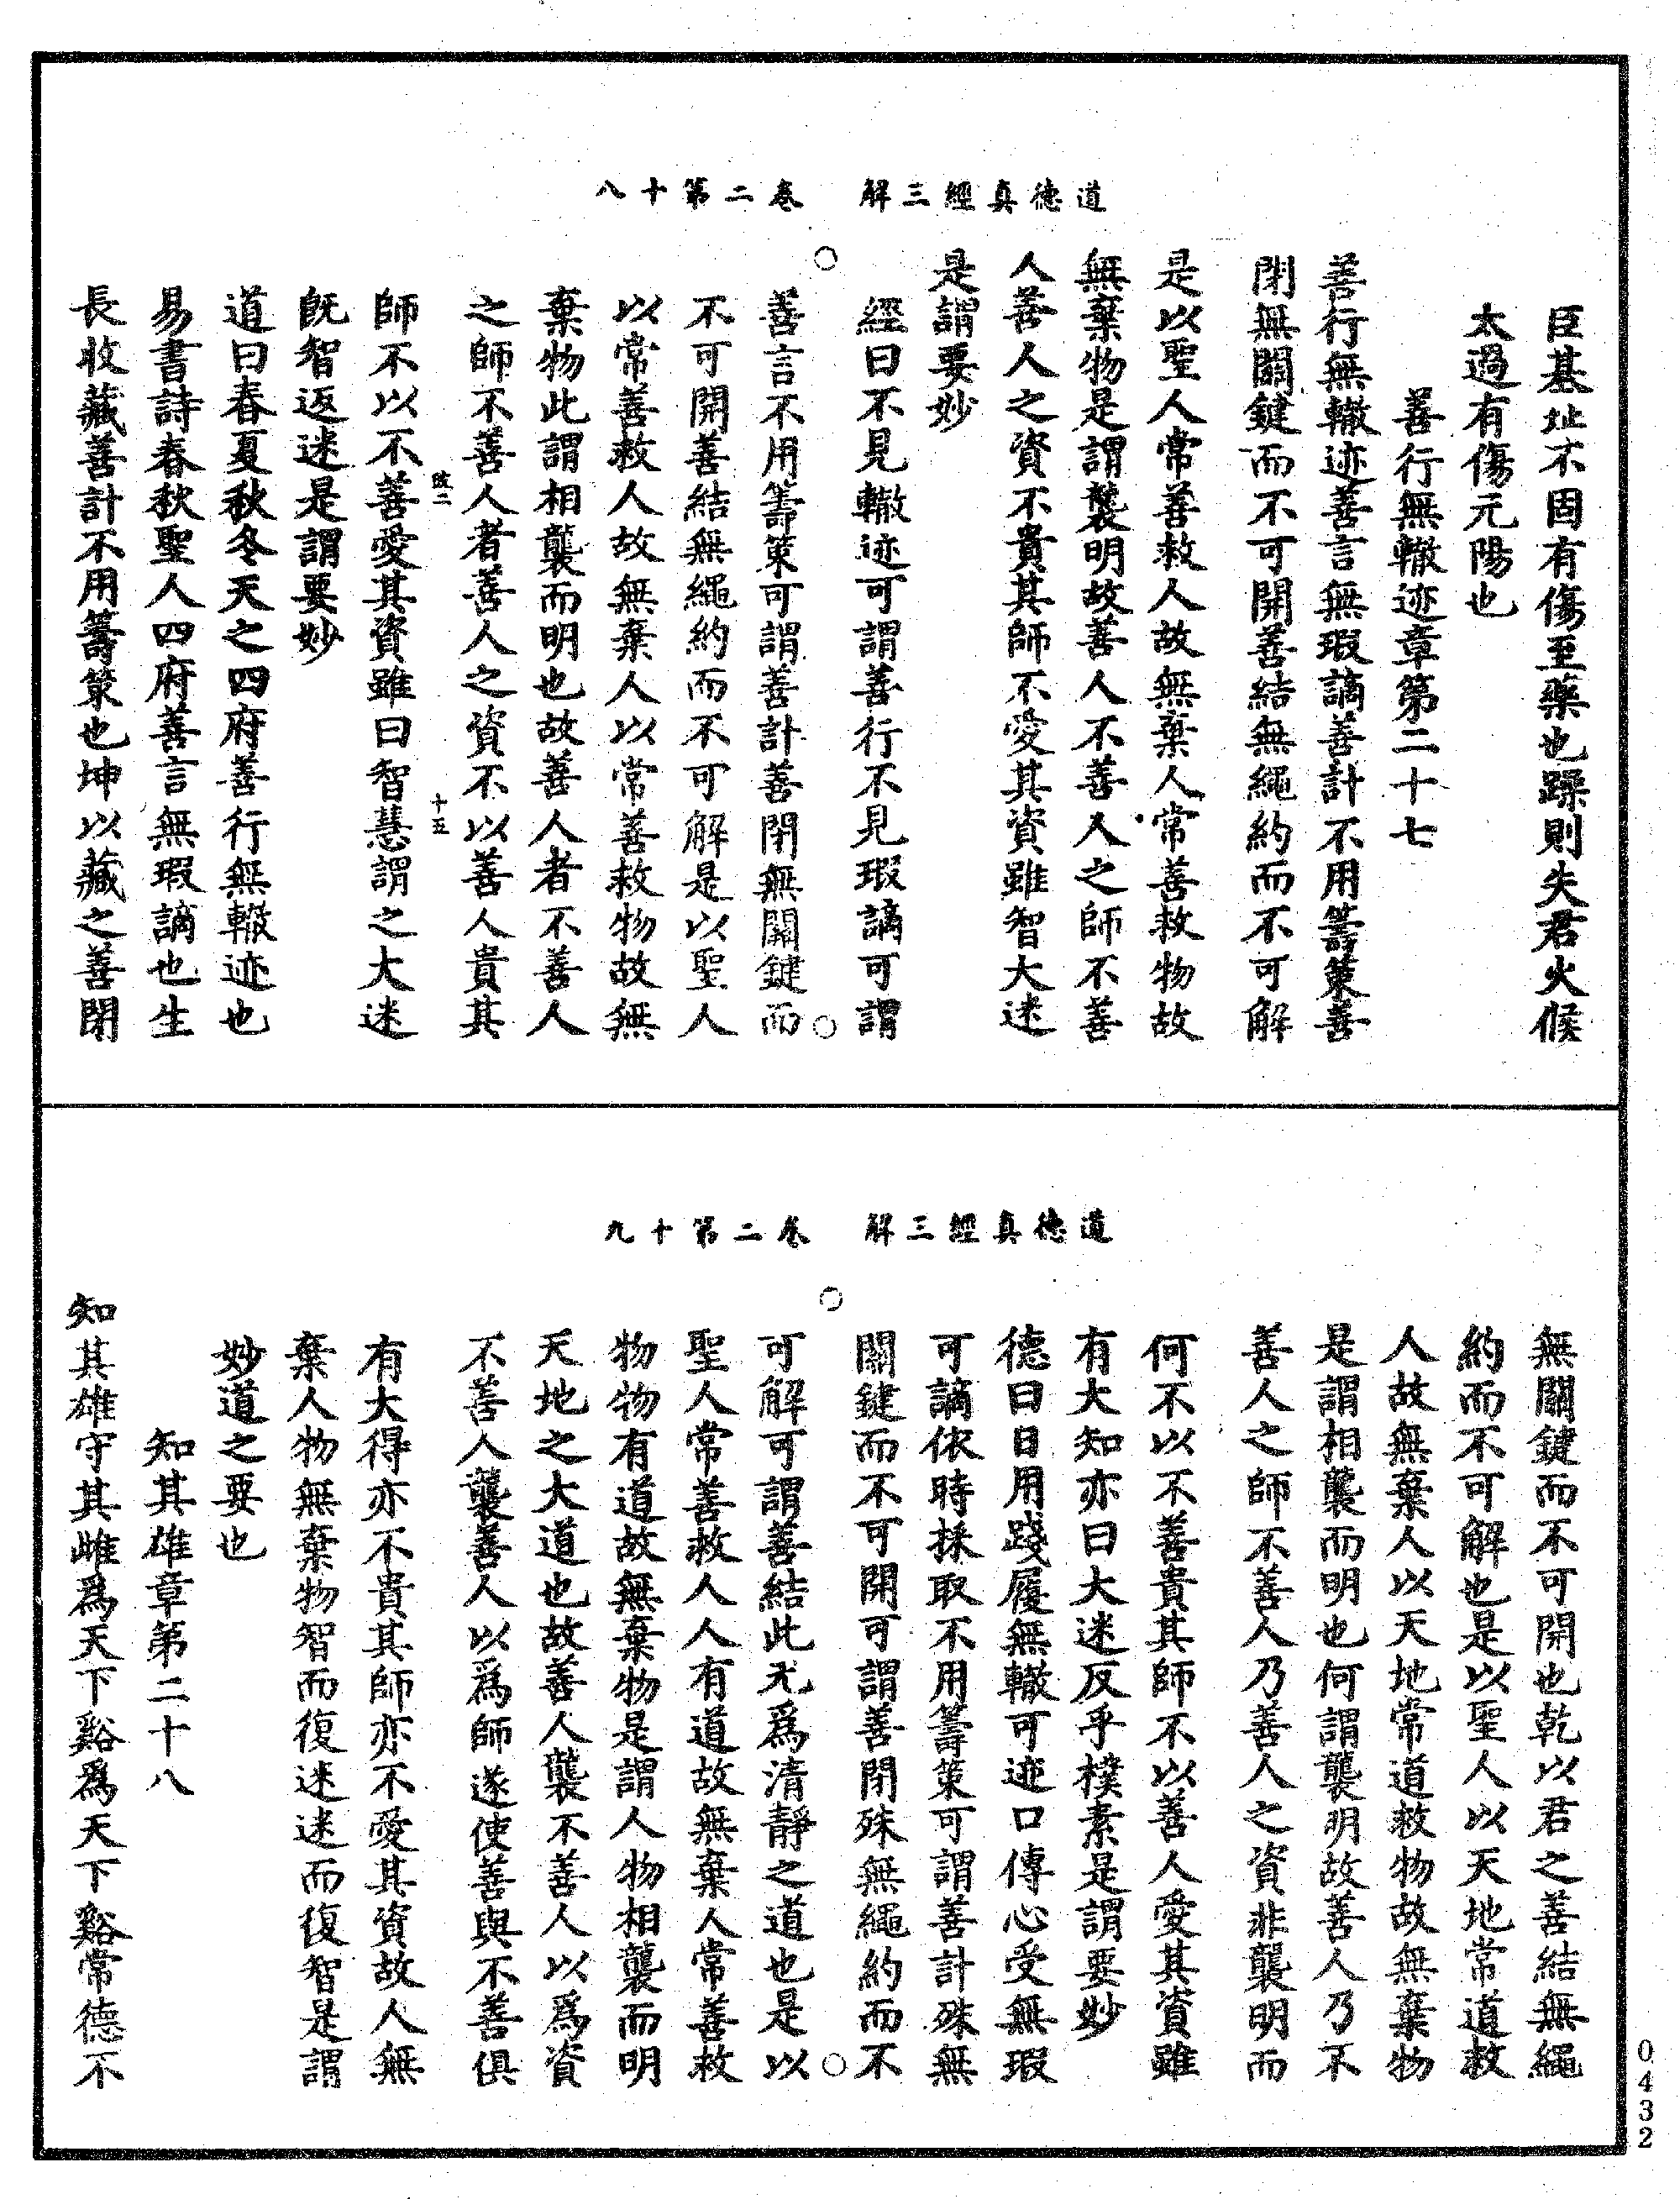 道德真經三解　卷二第十八
臣基址不固有傷至藥也躁則失君火候
太過有傷元陽也
善行無轍迹章第二十七
善行無轍迹善言無瑕謫善計不用籌策善
閉無關鍵而不可開善結無繩約而不可解
是以聖人常善救人故無棄人常善救物故
無棄物是謂襲明故善人不善人之師不善
人善人之資不貴其師不愛其資雖智大迷
是謂要妙
經曰不見轍迹可謂善行不見瑕謫可謂
善言不用籌策可謂善計善閉無關鍵而
不可開善結無繩約而不可解是以聖人
以常善救人故無棄人以常善救物故無
棄物此謂相襲而明也故善人者不善人
之師不善人者善人之資不以善人貴其
改二　十五
師不以不善愛其資雖曰智慧謂之大迷
既智返迷是謂要妙
道曰春夏秋冬天之四府善行無轍迹也
易書詩春秋聖人四府善言無瑕謫也生
長收藏善計不用籌策也坤以藏之善閉
道德真經三解　卷二第十九
無關鍵而不可開也乾以君之善結無繩
約而不可解也是以聖人以天地常道救
人故無棄人以天地常道救物故無棄物
是謂相襲而明也何謂襲明故善人乃不
善人之師不善人乃善人之資非襲明而
何不以不善貴其師不以善人愛其資雖
有大知亦曰大迷反乎樸素是謂要妙
德曰日用踐履無轍可迹口傳心受無瑕
可謫依時採取不用籌策可謂善計殊無
關鍵而不可開可謂善閉殊無繩約而不
可解可謂善結此尤爲清靜之道也是以
聖人常善救人人有道故無棄人常善救
物物有道故無棄物是謂人物相襲而明
天地之大道也故善人襲不善人以爲資
不善人襲善人以爲師遂使善與不善俱
有大得亦不貴其師亦不愛其資故人無
棄人物無棄物智而復迷迷而復智是謂
妙道之要也
知其雄章第二十八
知其雄守其雌爲天下谿爲天下谿常德不
0432